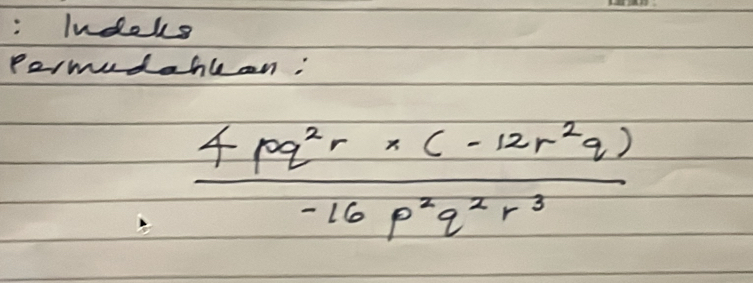 : Indeks
Permudahkan :
4 pq²r × ( - 12r²q )
-16 p²q²r³